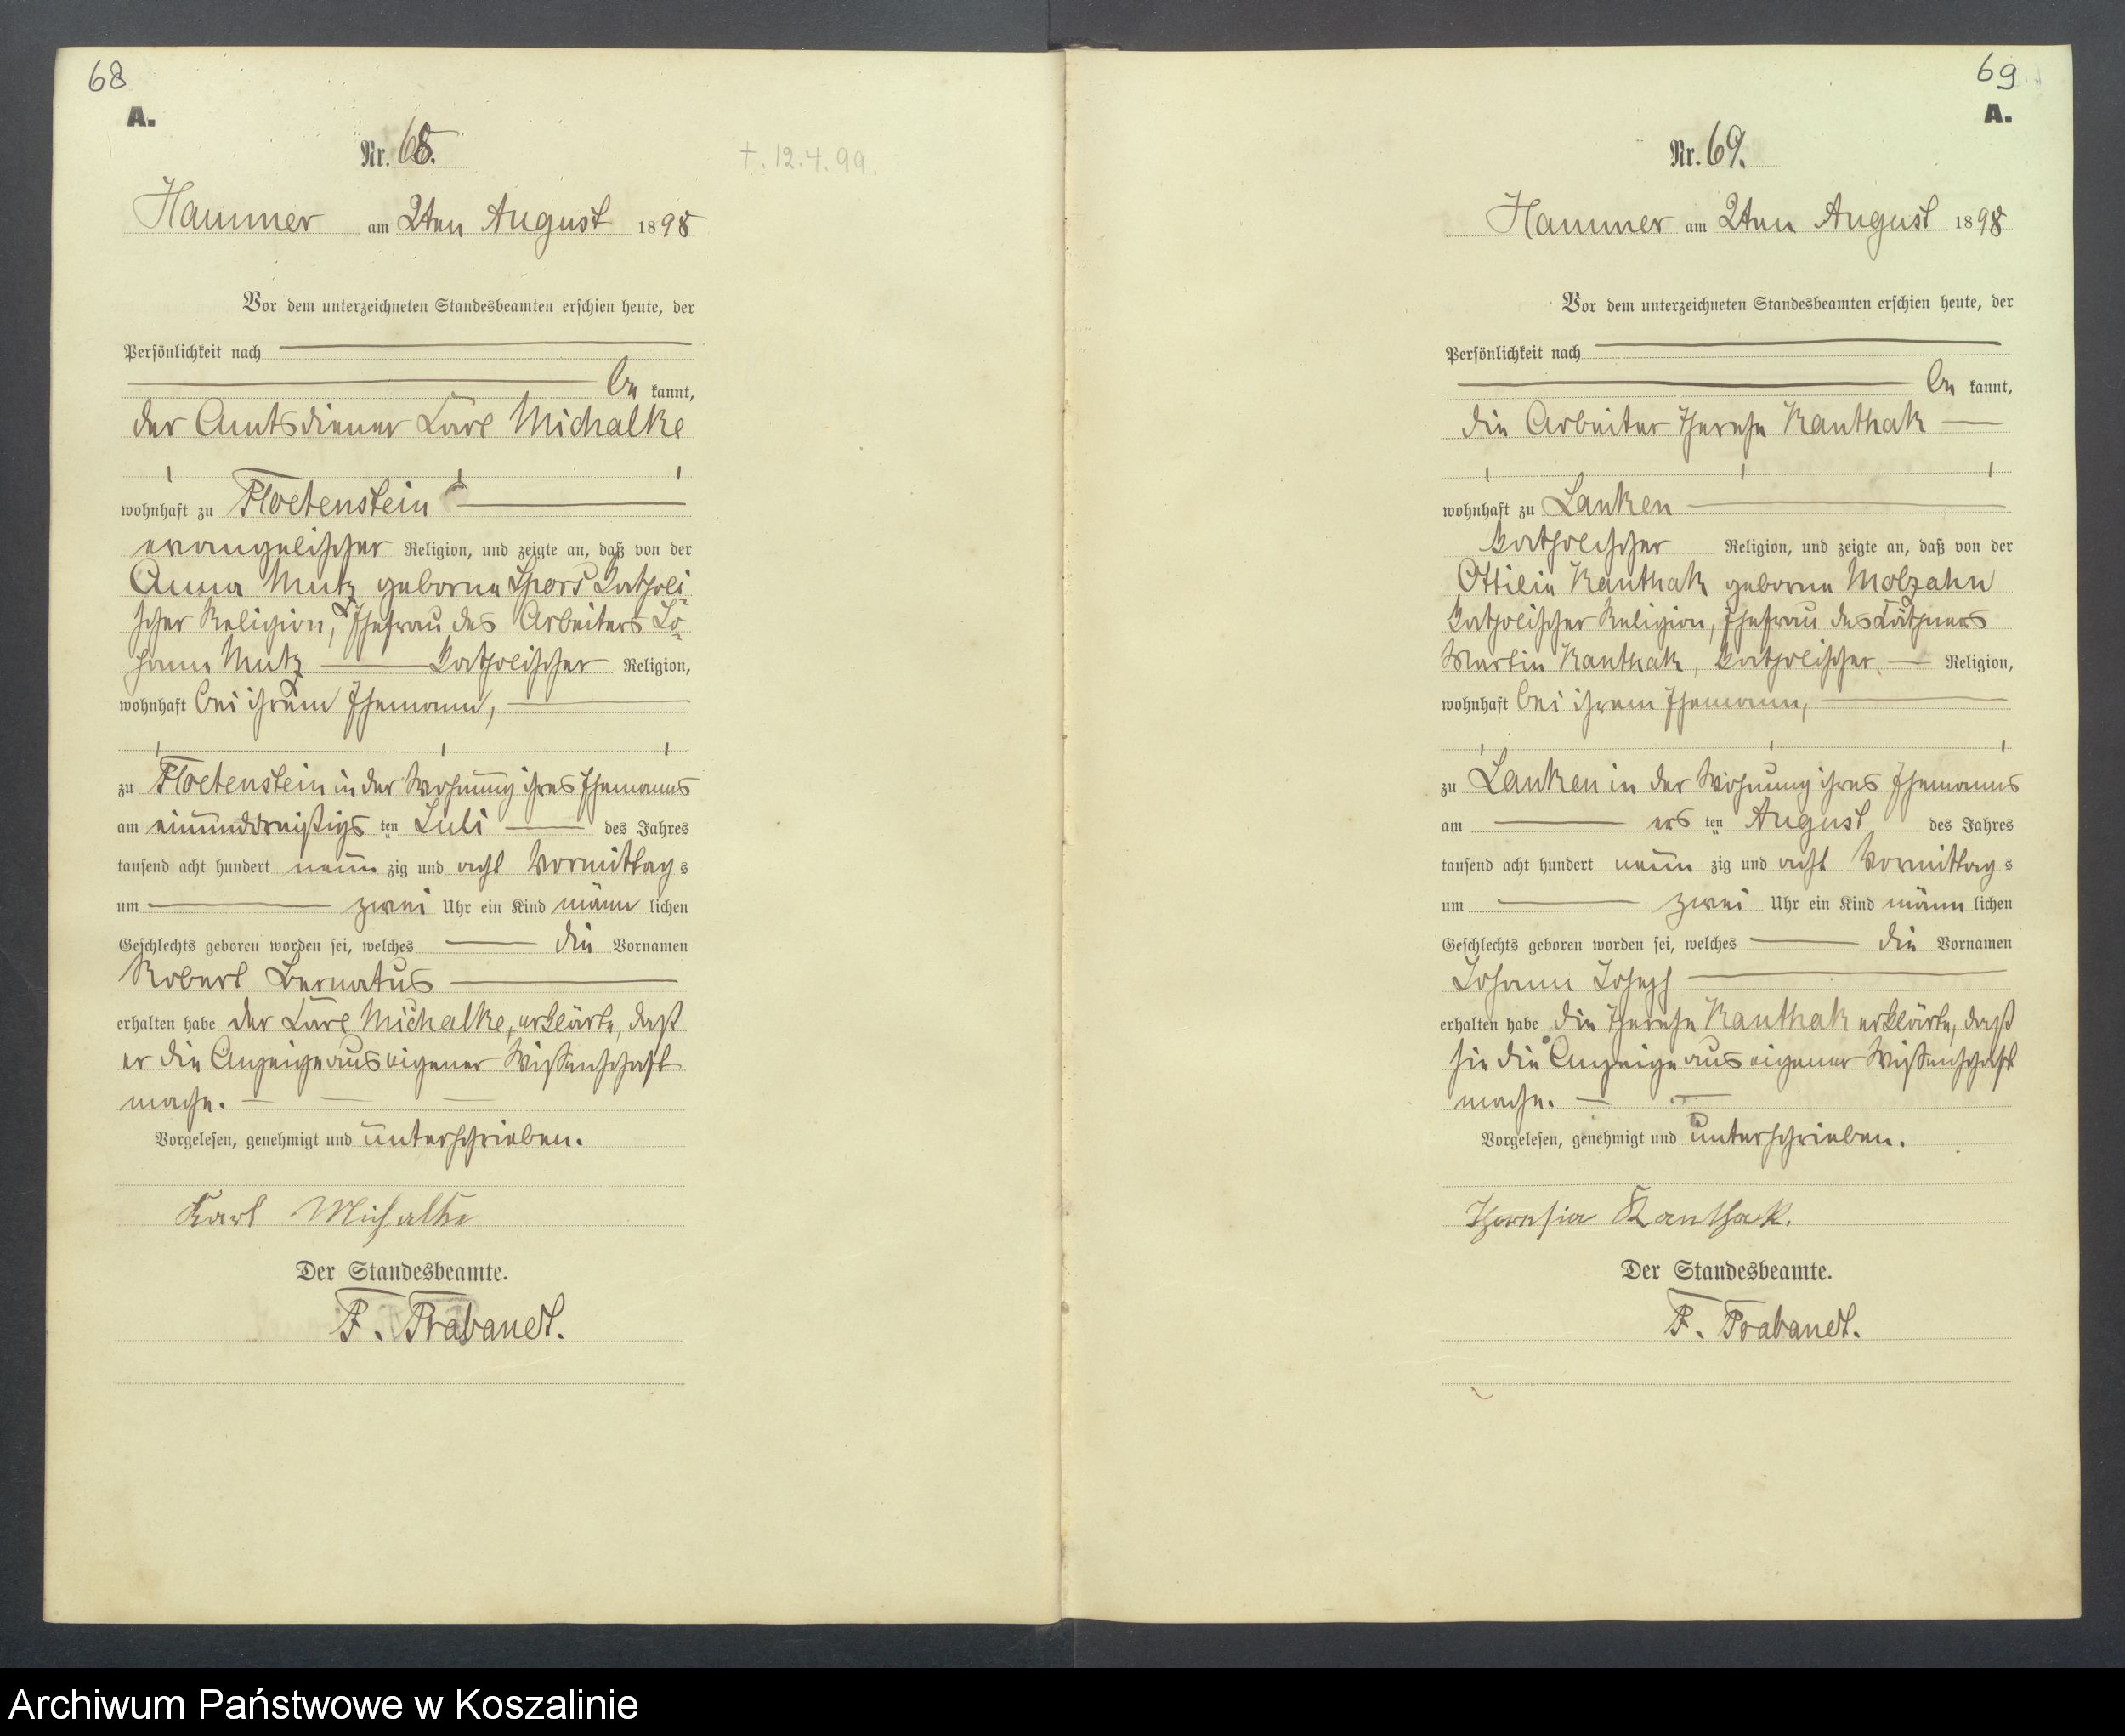 68
A.
Nr. 68.
†. 12.4.99.
Hammer am 2ten August 1898
Vor dem unterzeichneten Standesbeamten erschien heute, der
Persönlichkeit nach
be kannt,
der Amtsdiener Karl Michalke
wohnhaft zu Floetenstein
evangelischer Religion, und zeigte an, daß von der
Anna Mutz geborne Spors katholi
scher Religion, Ehefrau des Arbeiters Jo-
hann Mutz katholischer Religion,
wohnhaft bei ihrem Ehemann,
zu Floetenstein in der Wohnung ihres Ehemanns
am einunddreißigs ten Juli des Jahres
tausend acht hundert neun zig und acht Vormittag s
um zwei Uhr ein Kind männ lichen
Geschlechts geboren worden sei, welches die Vornamen
Robert
erhalten habe der Karl Michalke, erklärte, daß
er die Anzeige aus eigener Wissenschaft
mache.
Vorgelesen, genehmigt und unterschrieben.
Karl Michalke
Der Standesbeamte.
F. Trabandt.
69
A.
Nr. 69.
Hammer am 2ten August 1898
Vor dem unterzeichneten Standesbeamten erschien heute, der
Persönlichkeit nach
be kannt,
die Arbeiter Therese Kanthak
wohnhaft zu Lanken
katholischer Religion, und zeigte an, daß von der
Ottilie Kanthak geborne Molzahn
katholischer Religion, Ehefrau des Käthners
Martin Kanthak, katholischer Religion,
wohnhaft bei ihrem Ehemann,
zu Lanken in der Wohnung ihres Ehemanns
am ers ten August des Jahres
tausend acht hundert neun zig und acht Vormittag s
um zwei Uhr ein Kind männ lichen
Geschlechts geboren worden sei, welches die Vornamen
Johann Joseph
erhalten habe die Therese Kanthak erklärte, daß
sie die Anzeige aus eigener Wissenschaft
mache.
Vorgelesen, genehmigt und unterschrieben.
Theresia Kanthak.
Der Standesbeamte.
F. Trabandt.
Archiwum Państwowe w Koszalinie